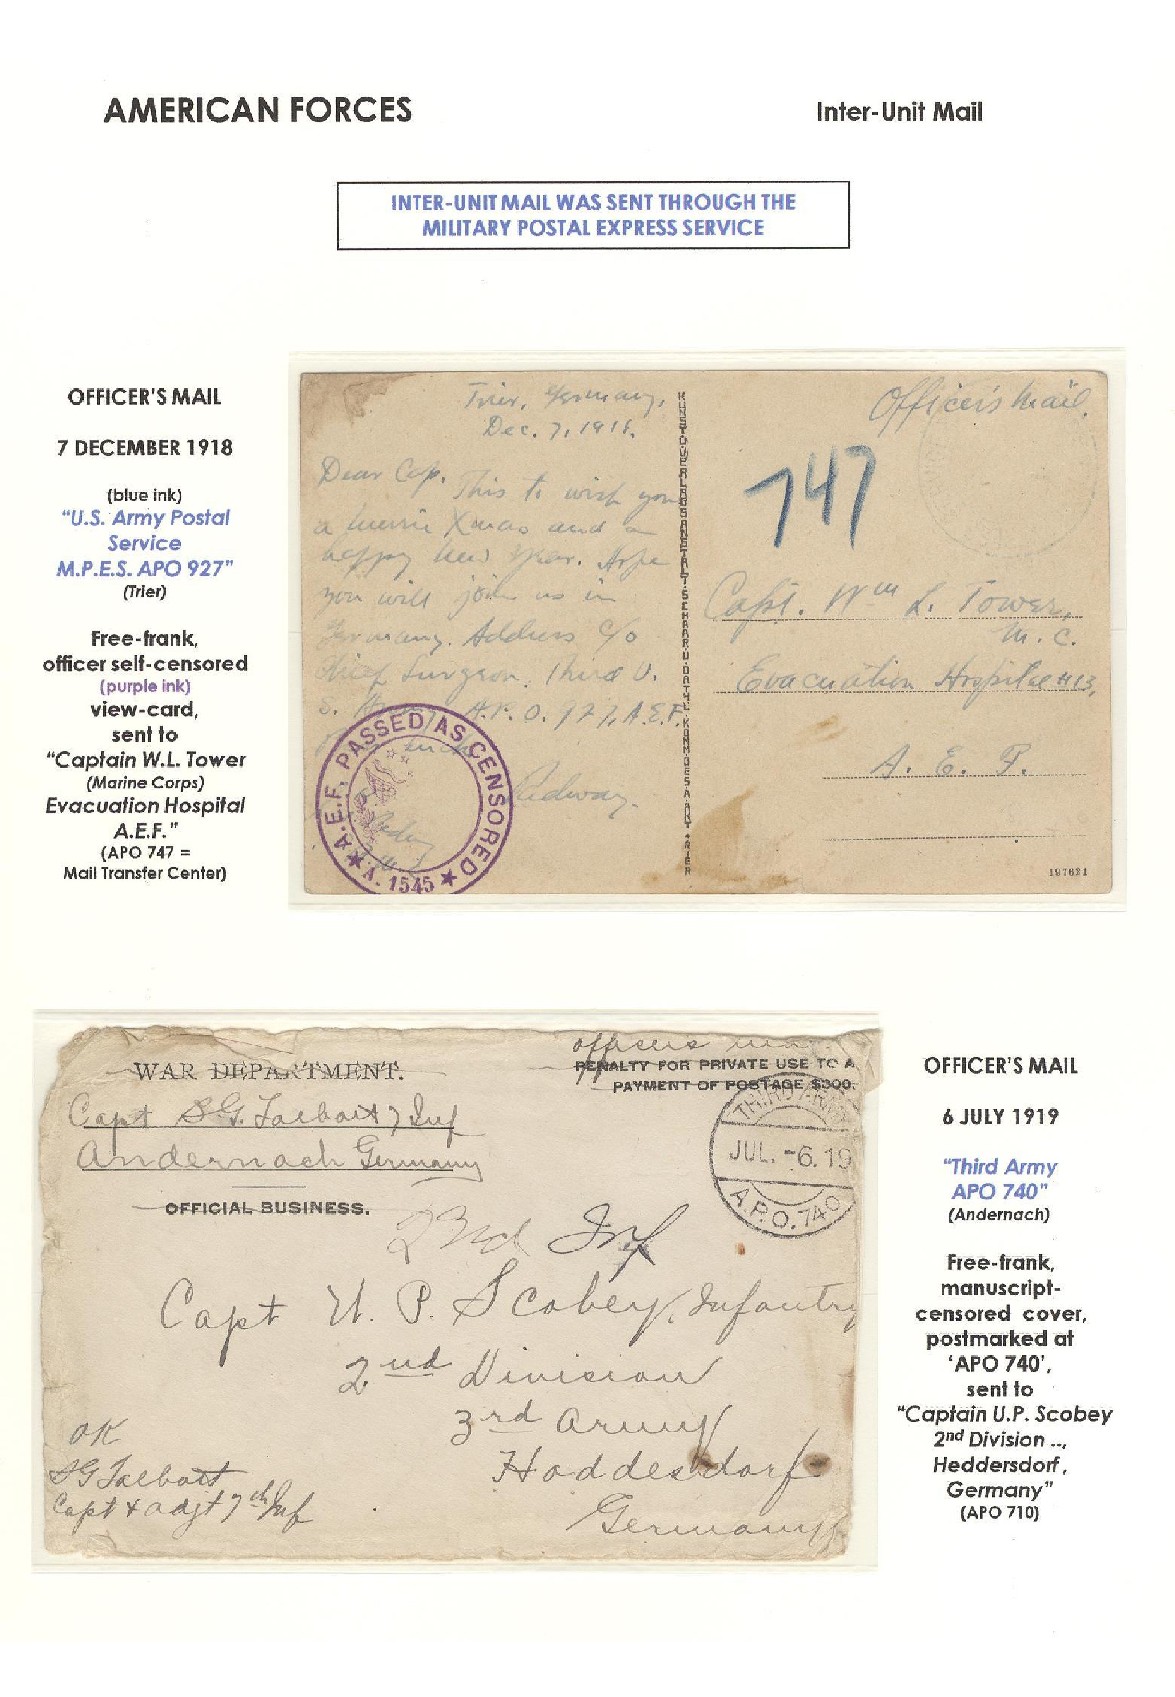 AMERICAN FORCES
Inter-Unit Mail
INTER-UNIT MAIL WAS SENT THROUGH THE
MILITARY POSTAL EXPRESS SERVICE
OFFICER'S MAIL
7 DECEMBER 1918
(blue ink)
"U.S. Army Postal
Service
M.P.E.S. APO 927"
(Trier)
Free-frank,
officer self-censored
(purple ink)
view-card,
sent to
"Captain W.L. Tower
(Marine Corps)
Evacuation Hospital
A.E.F."
(APO 747 =
Mail Transfer Center)
Trier, Germany,
Dec. 7, 1918.
Dear Cap. This to wish you
a merrie Xmas and a
happy new year. Hope
you will join us in
Germany. Address c/o
Chief Surgeon, Third U.
S. Army A.P.O. 927, A.E.F.
luck
Ridway.
A.E.F. PASSED AS CENSORED
A. 1545
Officer's Mail.
747
Capt. Wm L. Tower,
M.C.
Evacuation Hospital #13,
A. E. F.
197621
WAR DEPARTMENT.
Capt S.G. Talbott 7 Inf
Andernach Germany
OFFICIAL BUSINESS.
officers mail
PENALTY FOR PRIVATE USE TO A
PAYMENT OF POSTAGE $300.
THIRD ARMY
JUL. -6.19
A.P.O. 740
23rd Inf
Capt U. P. Scobey, Infantry
2nd Division
3rd Army
Hoddesdorf
Germany
OK
SG Talbott
Capt & adjt 7th Inf
OFFICER'S MAIL
6 JULY 1919
"Third Army
APO 740"
(Andernach)
Free-frank,
manuscript-
censored cover,
postmarked at
'APO 740',
sent to
"Captain U.P. Scobey
2nd Division ..,
Heddersdorf,
Germany"
(APO 710)